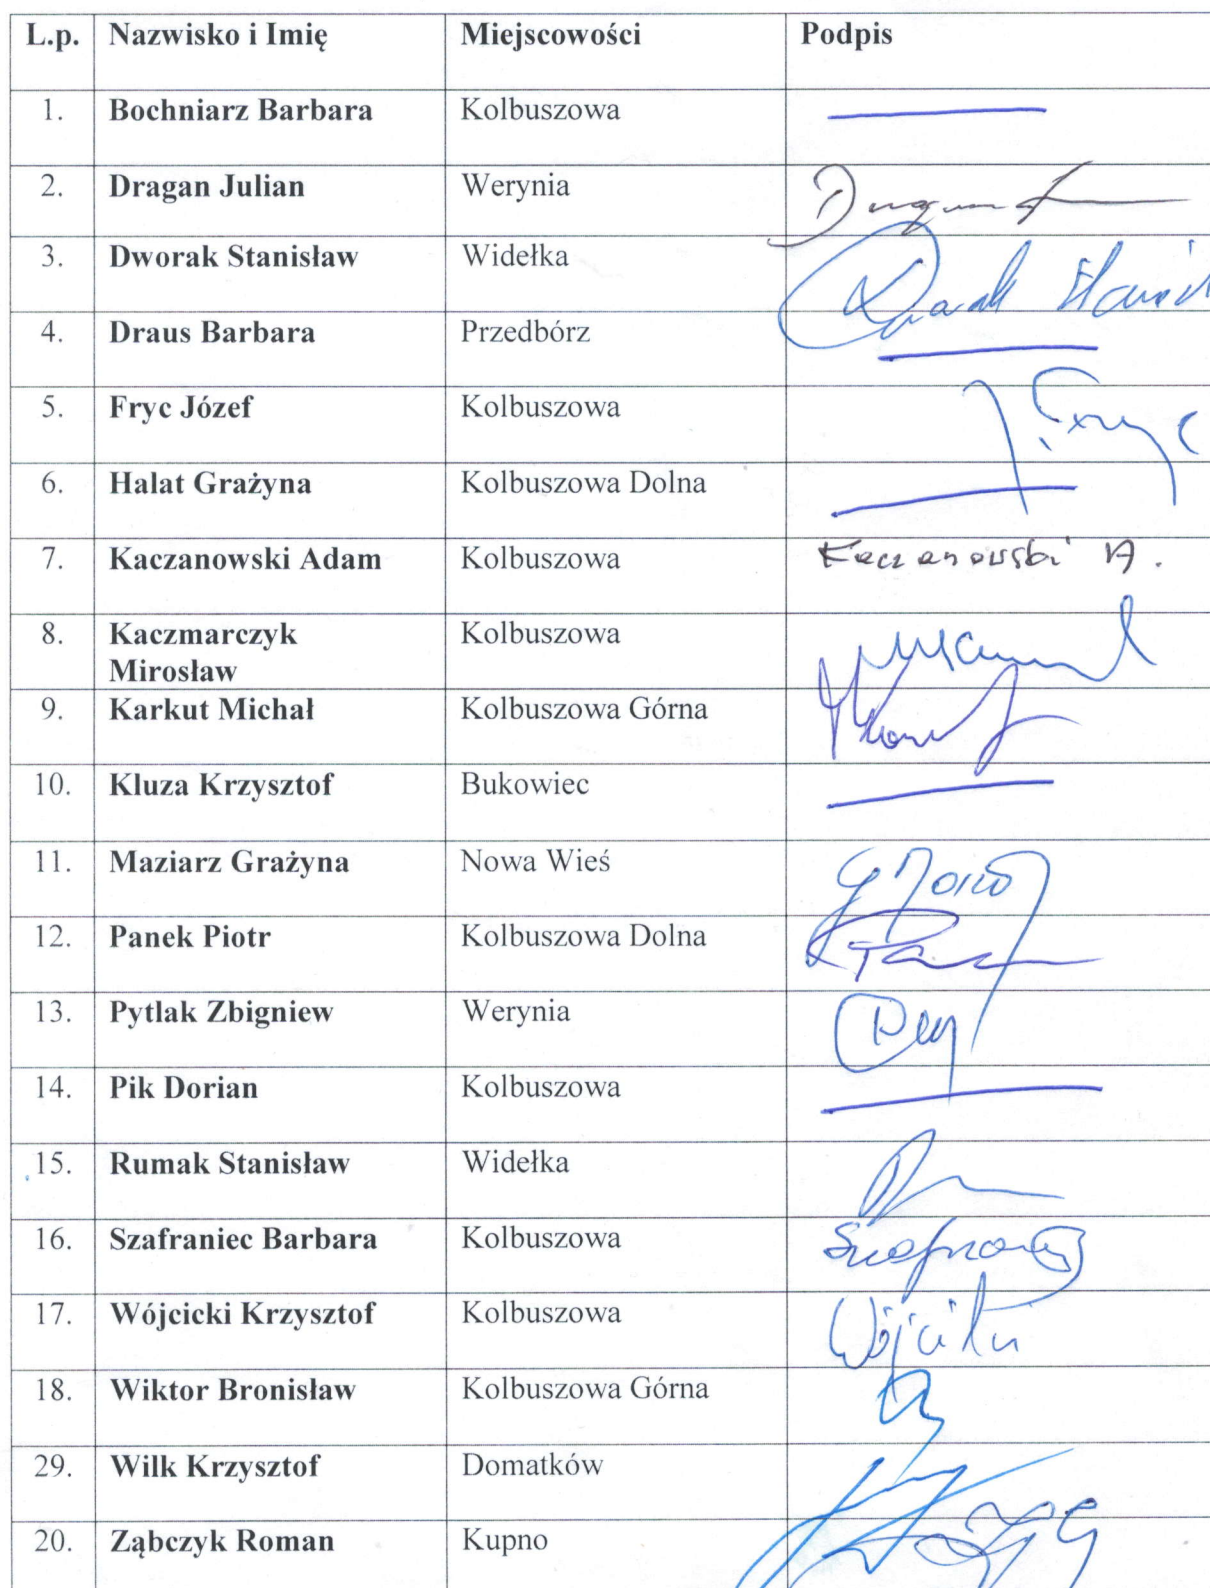 L.p. Nazwisko i Imię Miejscowości Podpis
1. Bochniarz Barbara Kolbuszowa
2. Dragan Julian Werynia
3. Dworak Stanisław Widełka
4. Draus Barbara Przedbórz
5. Fryc Józef Kolbuszowa
6. Halat Grażyna Kolbuszowa Dolna
7. Kaczanowski Adam Kolbuszowa Kaczanowski A.
8. Kaczmarczyk Kolbuszowa
Mirosław
9. Karkut Michał Kolbuszowa Górna
10. Kluza Krzysztof Bukowiec
11. Maziarz Grażyna Nowa Wieś
12. Panek Piotr Kolbuszowa Dolna
13. Pytlak Zbigniew Werynia
14. Pik Dorian Kolbuszowa
15. Rumak Stanisław Widełka
16. Szafraniec Barbara Kolbuszowa
17. Wójcicki Krzysztof Kolbuszowa
18. Wiktor Bronisław Kolbuszowa Górna
29. Wilk Krzysztof Domatków
20. Ząbczyk Roman Kupno